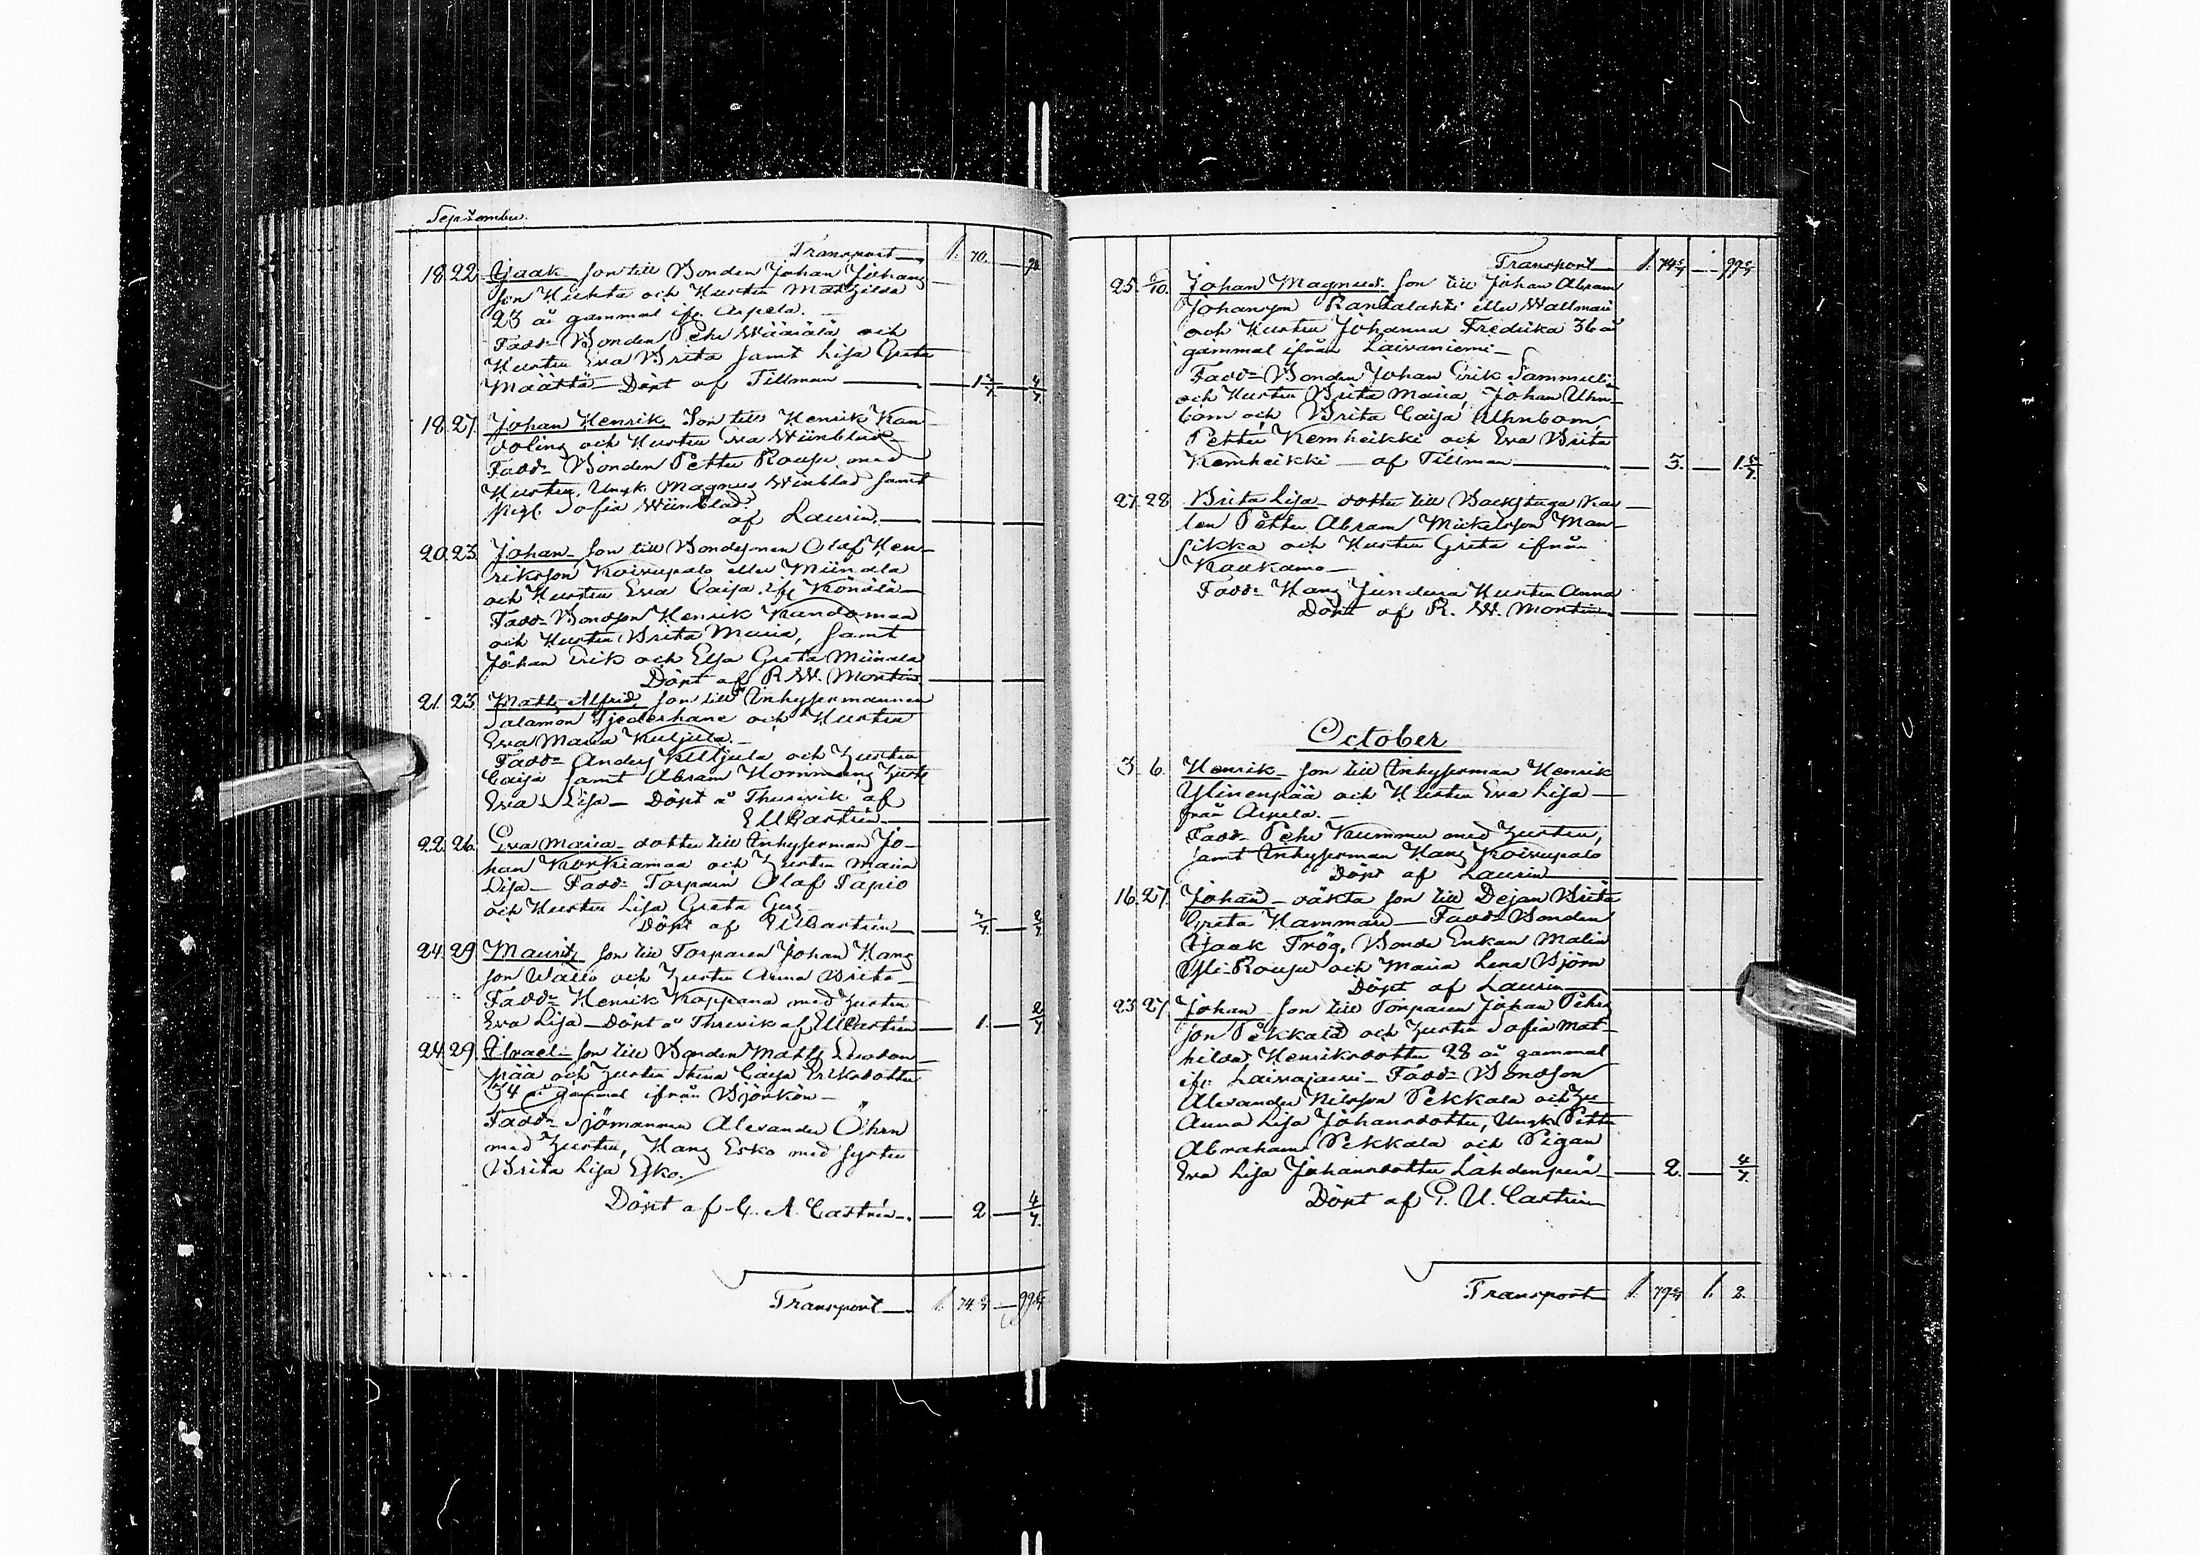 September.
Transport— 1. 70. 98.
18. 22. Isaak son till Bonden Johan Johans-
son Huhta och Hustru Mathilda
23 år gammal ifr. Arpela.
Fadd= Bonden Pehr Määttä och
Hustru Eva Brita samt Lisa Greta
Määttä— Döpt af Tillman
18. 27. Johan Henrik Son till Henrik Kan-
doling och Hustru Eva Wiinblad
Fadd= Bonden Petter Rousu med
Hustru, Ungk. Magnus Winblad samt
Pig. Sofia Wiinblad.
af Laurin.—
20. 23. Johan— son till Bondeman Olof Hen-
riksson Koivupalo eller Miinala
och Hustru Eva Caisa, ifr Könölä—
Fadd= Bondson Henrik Kandoman
och Hustru Brita Maria, samt
Johan Erik och Elsa Greta Miinala
Döpt af R. W. Montin
21. 23. Matts Alfred, son till Inhysesmannen
Salamon Tjederhane och Hustru
Eva Maria Kuljula.—
Fadd= Anders Kuljula och Hustru
Caisa samt Abram Hommang Hustr
Eva Lisa— Döpt å Thurevik af
E U Castrén—
22. 26. Eva Maria— dotter till Inhysesman Jo-
han Korkiamaa och Hustru Maria
Lisa— Fadd= Torparn Olof Tapio
och Hustru Lisa Greta
Döpt af E U Castrén
24. 29. Mauritz son till Torparen Johan Hans
son Wallo och Hustru Anna Brita—
Fadd= Henrik Koppana med Hustru
Eva Lisa— Döpt å Threvik af E U Castrén— 1.
24. 29. Israel— son till Bonden Matts
pää och Hustru Stina Caisa Eriksdotter
34 år gammal ifrån Björkön—
Fadd= Sjömannen Alexander Öhrn
med Hustru, Hans Esko med syster
Brita Lisa Esko.
Döpt af C. A. Castrén— 2. 4/7.
Transport— 1. 74
Transport— 1.
25. Johan Magnus. son till Johan Abram
Johansson Rantalahti eller Wallman
och Hustru Johanna Fredrika 36 år
gammal ifrån Laivaniemi—
Fadd= Bonden Johan Erik Sammeli
och Hustru Brita Maria, Johan Uhn-
bom och Brita Caisa Uhnbom,
Petter Kemheikki och Eva Brita
Kemheikki— af Tillman— 5.
27. 28. Brita Lisa— dotter till Backstuga Kar
len Petter Abram Mickelsson Man-
sikka och Hustru Greta ifrån
Kaakamo—
Fadd= Hans Hustru Anna
Döpt af R. W. Montin
October
3. 6. Henrik— son till Inhysesman Henrik
Ylinenpää och Hustru Eva Lisa—
från Arpela.—
Fadd= Pehr Kummu med Hustru,
samt Inhysesman Hans Koivupalo
Döpt af Laurin
16. 27. Johan— oäkta son till Pejan Brita
Greta Hammare— Fadd= Bonden
Isaak Frög, Bonde Enkan Malin
Yli-Rousu och Maria Lena Björn
Döpt af Laurin—
23. 27. Johan son till Torparen Johan Pehrs
son Pekkala och Hustru Sofia Mat-
hilda Henriksdotter 28 år gammal
ifr. Laivajärvi— Fadd= Bondson
Alexander Nilsson Pekkala och Hu
Anna Lisa Johansdotter, Ungk. Petter
Abraham Pekkala och Pigan
Eva Lisa Johansdotter Lahdenperä— 2. 4/7.
Döpt af E. U. Castrén
Transport— 1. 79 1. 2.